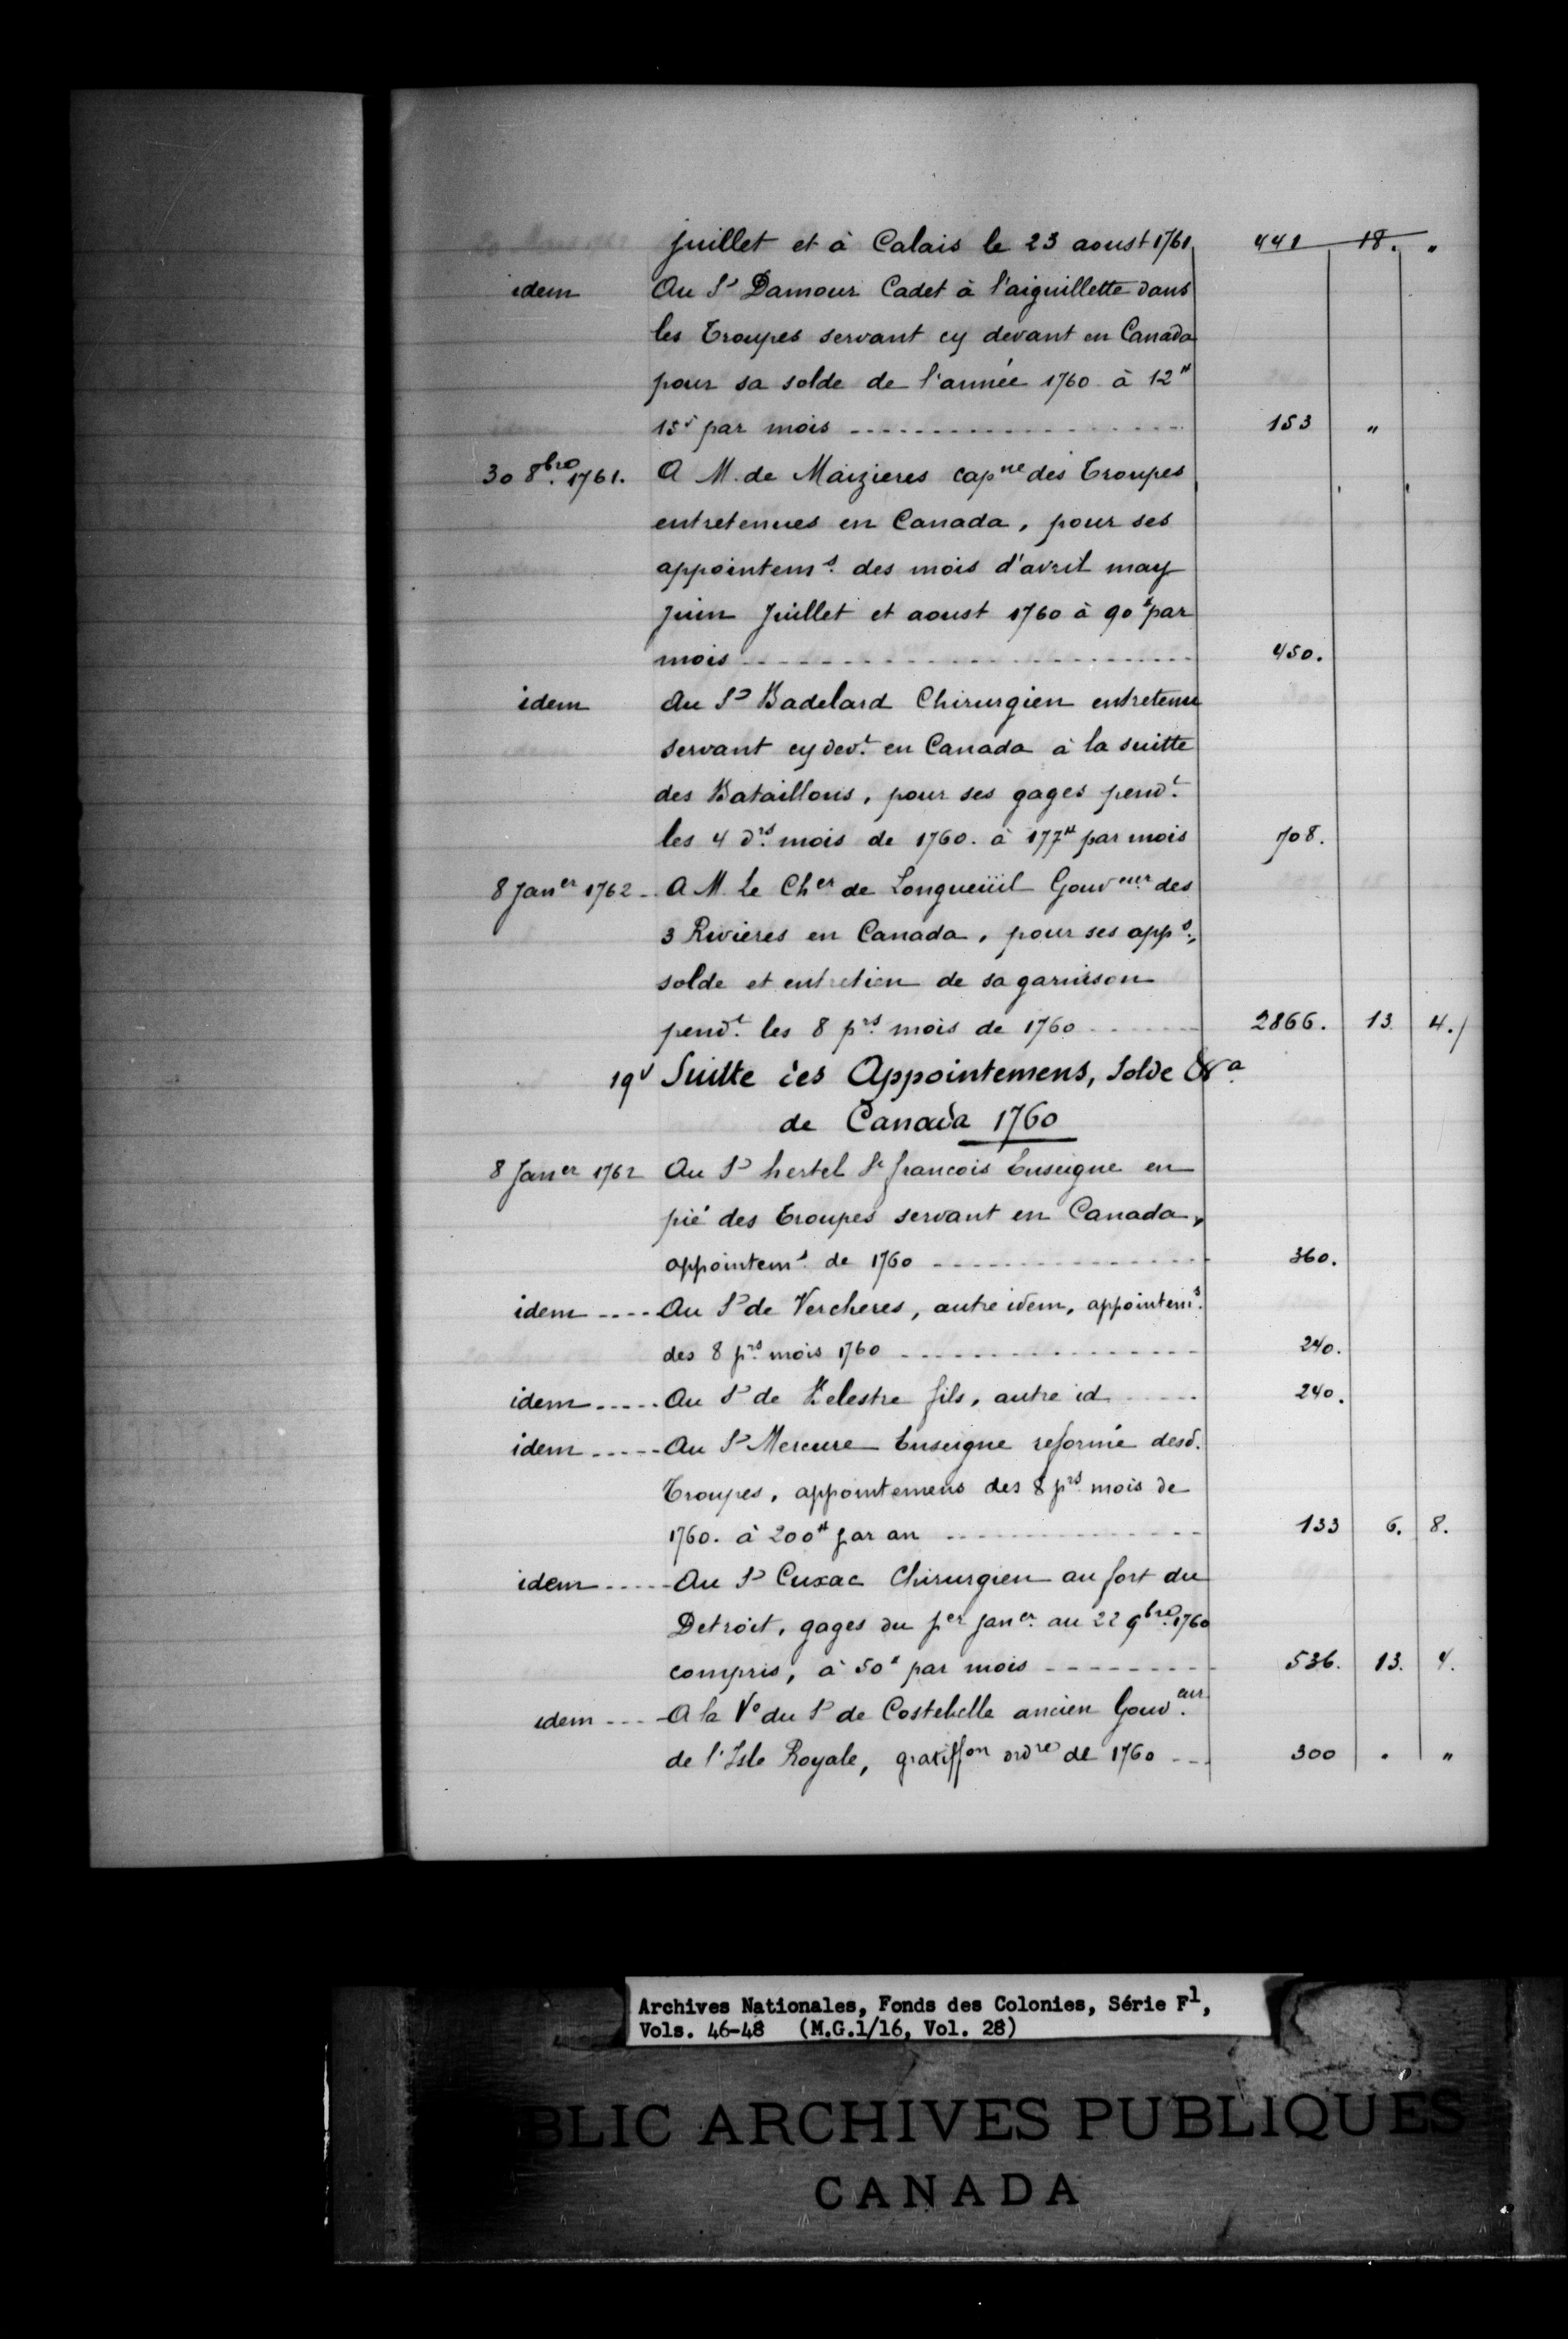 Juillet et à Calais le 23 aoust 1761 441 18. "
idem Au Sr Damour Cadet à l'aiguillette dans
les Troupes servant cy devant en Canada
pour sa solde de l'année 1760 à 12tt
15s par mois 153 "
30 8bre. 1761. A M. de Maizieres capne des Troupes
entretenues en Canada, pour ses
appointems. des mois d'avril may
Juin Juillet et aoust 1760 à 90tt par
mois 450.
idem Au Sr Badelard Chirurgien entretenu
servant cy devt. en Canada à la suitte
des Bataillons, pour ses gages pendt.
les 4 drs. mois de 1760. à 177tt par mois 708.
8 Janer 1762 A M. Le Cher de Longueüil Gouveur. des
3 Rivieres en Canada, pour ses apps.,
solde et entretien de sa garnison
pendt. les 8 prs. mois de 1760 2866. 13. 4./
19v Suitte des Appointemens, Solde &a.
de Canada 1760
8 Janer 1762 Au Sr hertel St francois Enseigne en
pié des Troupes servant en Canada,
appointems. de 1760 360.
idem Au Sr de Vercheres, autre idem, appointems.
des 8 prs. mois 1760 240.
idem Au Sr de Belestre fils, autre id 240.
idem Au Sr Mercure Enseigne reformé desd.
Troupes, appointemens des 8 prs. mois de
1760. à 200tt par an 133 6. 8.
idem Au Sr Cuxac Chirurgien au fort du
Detroit, gages du per Janer. au 22 9bre. 1760
compris, à 50tt par mois 536. 13. 4.
idem A la Ve du Sr de Costebelle ancien Gouveur.
de l'Isle Royale, gratiffon ordre de 1760 300 . "
Archives Nationales, Fonds des Colonies, Série F1,
Vols. 46-48 (M.G.1/16, Vol. 28)
BLIC ARCHIVES PUBLIQUES
CANADA